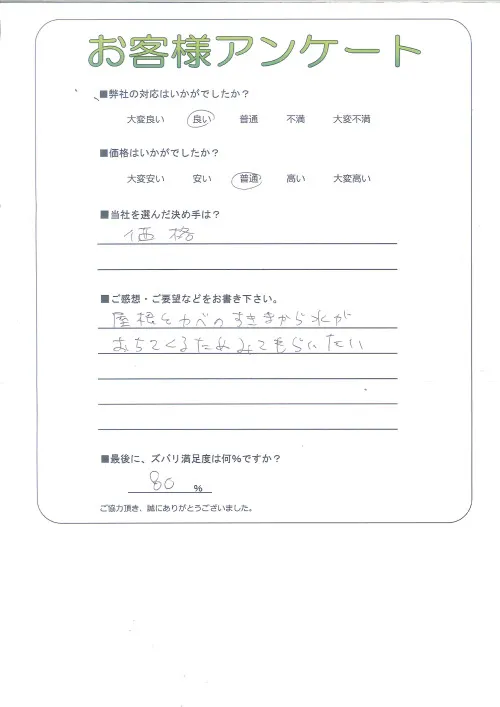 お客様アンケート
■弊社の対応はいかがでしたか？
大変良い 良い 普通 不満 大変不満
■価格はいかがでしたか？
大変安い 安い 普通 高い 大変高い
■当社を選んだ決め手は？
価格
■ご感想・ご要望などをお書き下さい。
屋根とカベのすきまから水が
おちてくるためみてもらいたい
■最後に、ズバリ満足度は何%ですか？
80 %
ご協力頂き、誠にありがとうございました。